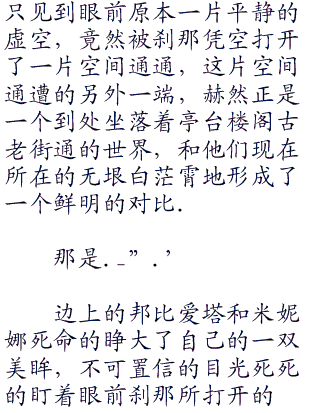 只见到眼前原本一片平静的
虚空，竟然被刹那凭空打开
了一片空间通通，这片空间
通遭的另外一端，赫然正是
一个到处坐落着亭台楼阁古
老街通的世界，和他们现在
所在的无垠白茫霄地形成了
一个鲜明的对比.
那是._”.’
边上的邦比爱塔和米妮
娜死命的睁大了自己的一双
美眸，不可置信的目光死死
的盯着眼前刹那所打开的